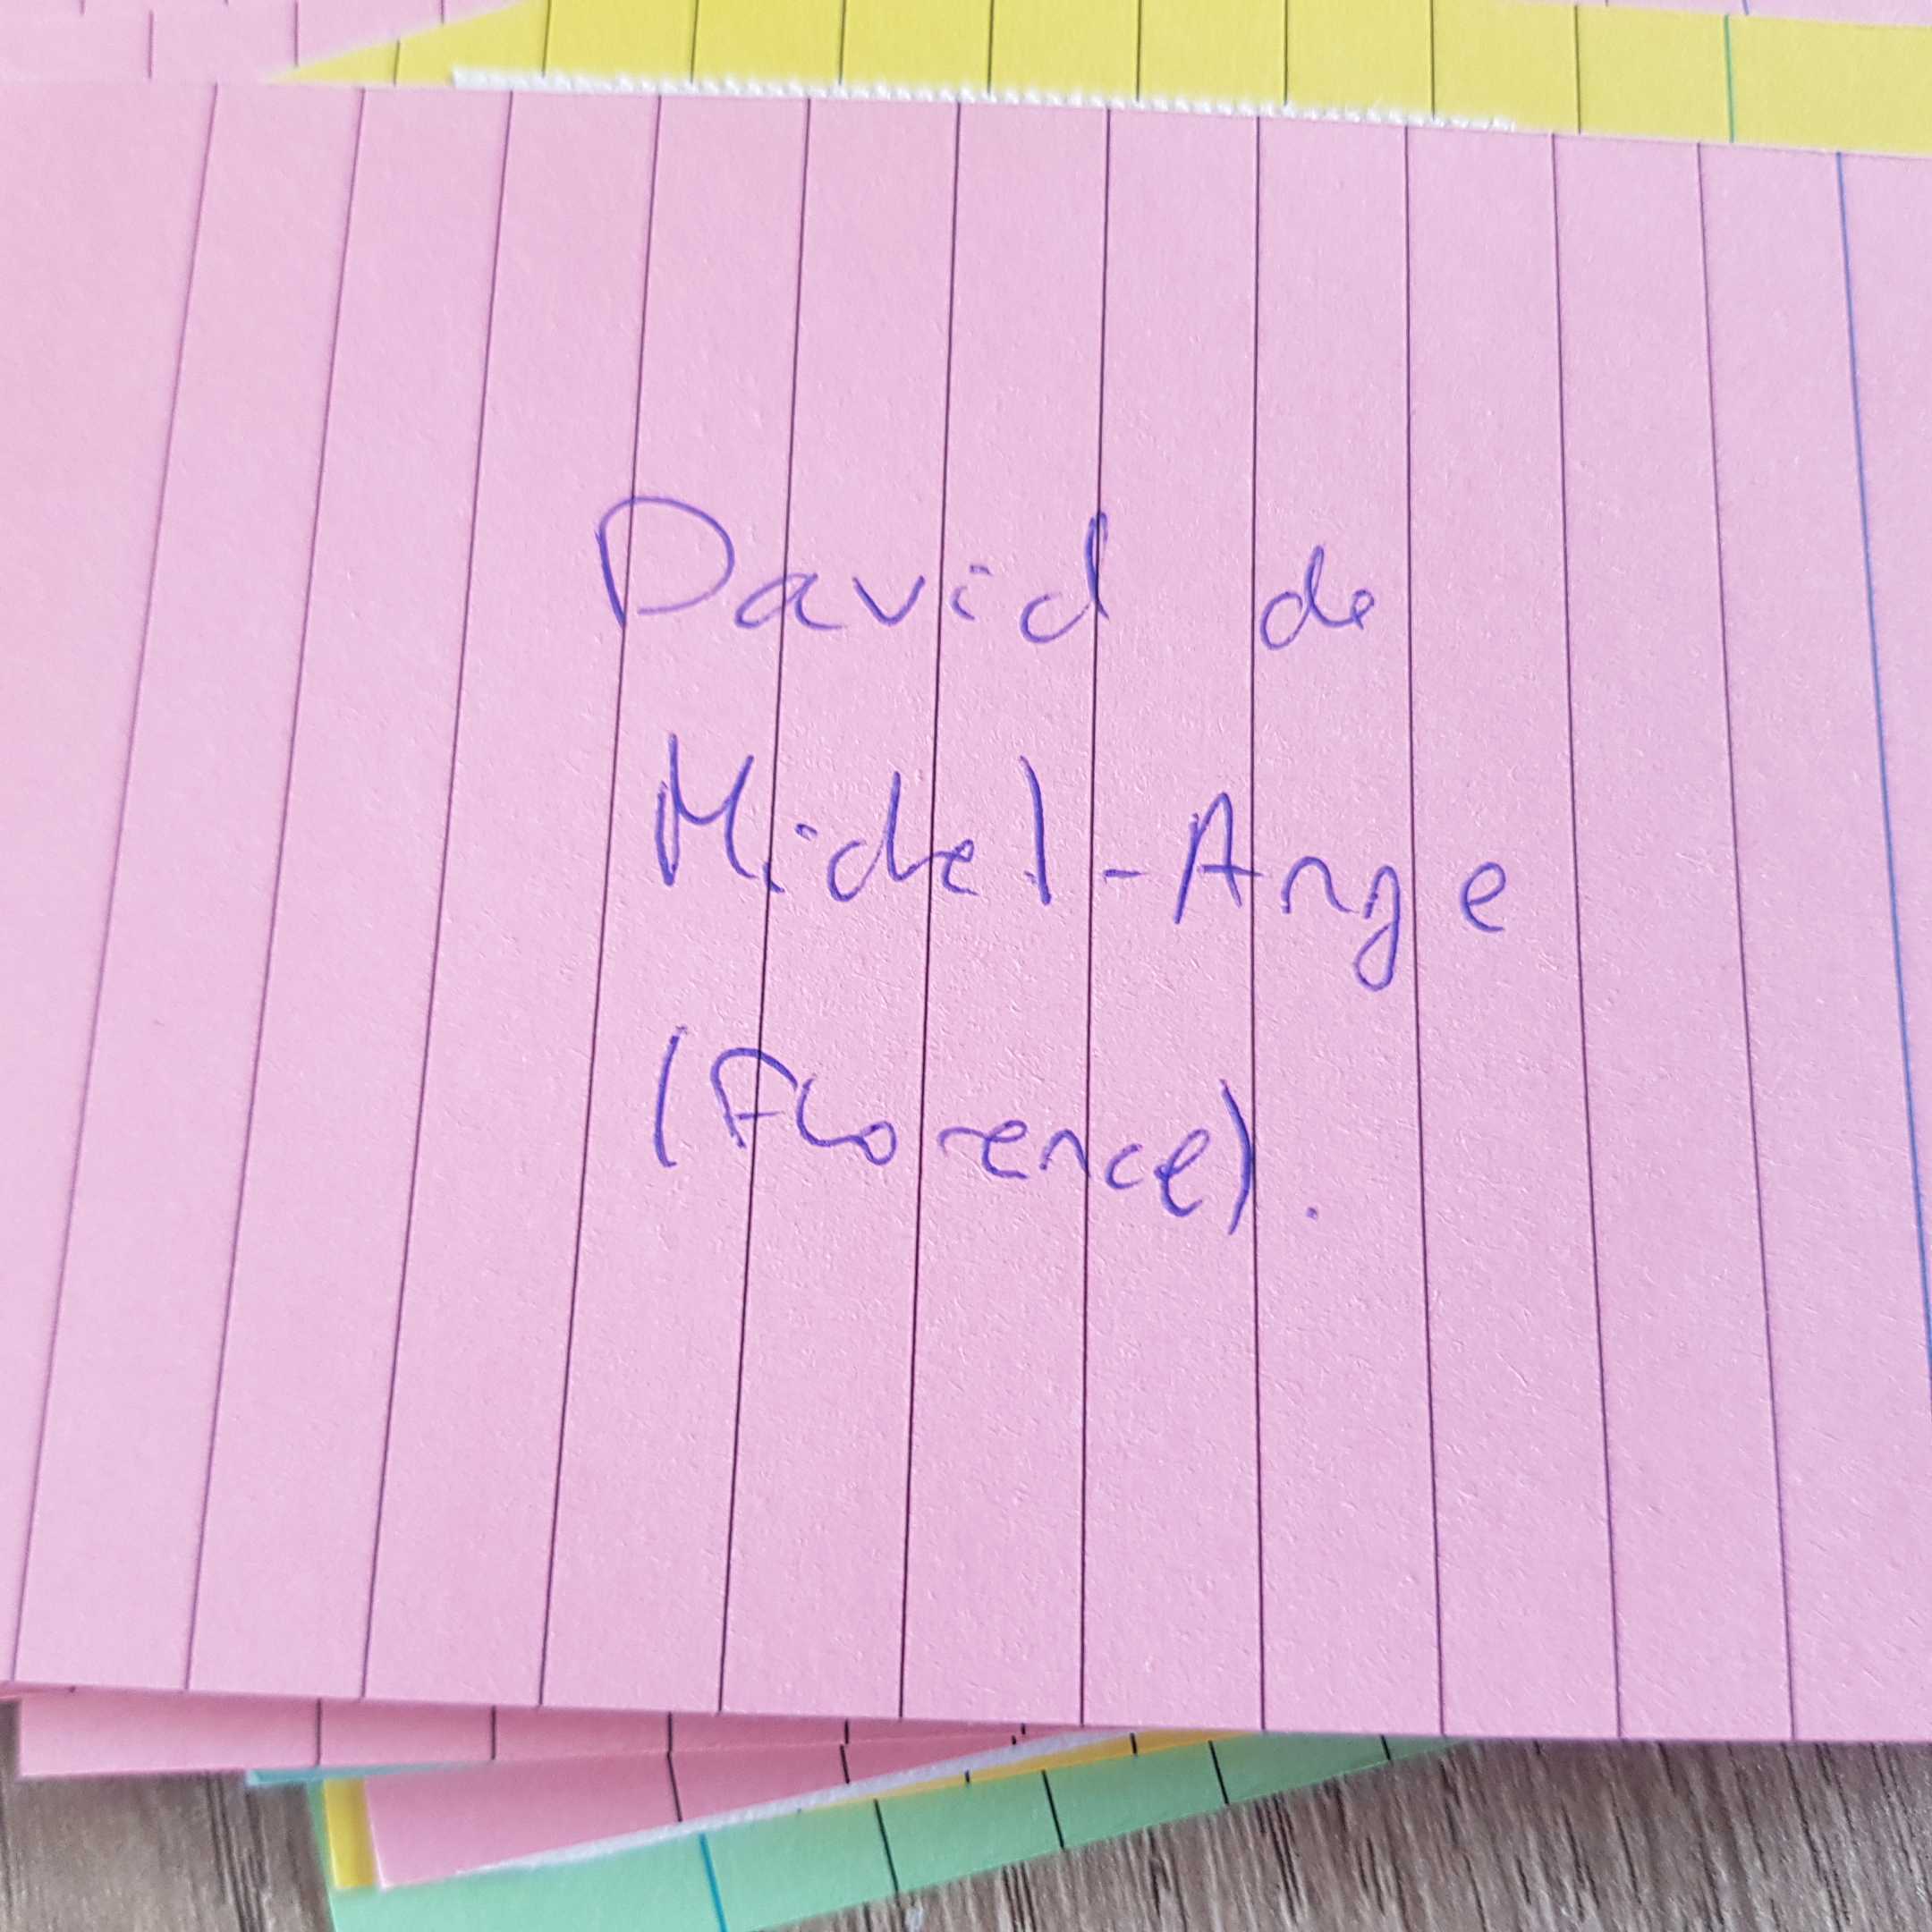 David de
Michel-Ange
(Florence).